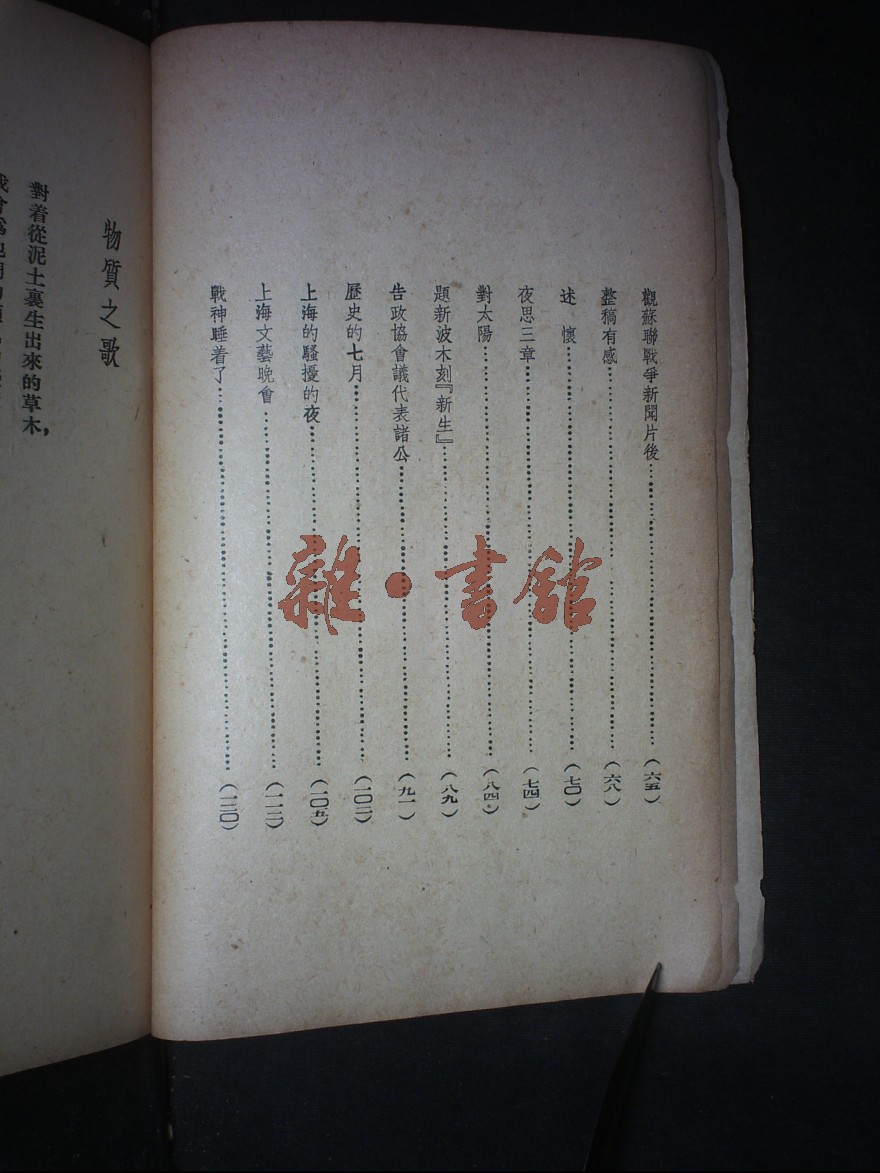 觀蘇聯戰爭新聞片後…………(六五)
整稿有感…………(六八)
述懷…………(七〇)
夜思三章…………(七四)
對太陽…………(八四)
題新波木刻『新生』…………(八九)
告政協會議代表諸公…………(九一)
歷史的七月…………(一〇二)
上海的騷擾的夜…………(一〇五)
上海文藝晚會…………(一一二)
戰神睡着了…………(一二〇)
雜·書館
物質之歌
對着從泥土裏生出來的草木，